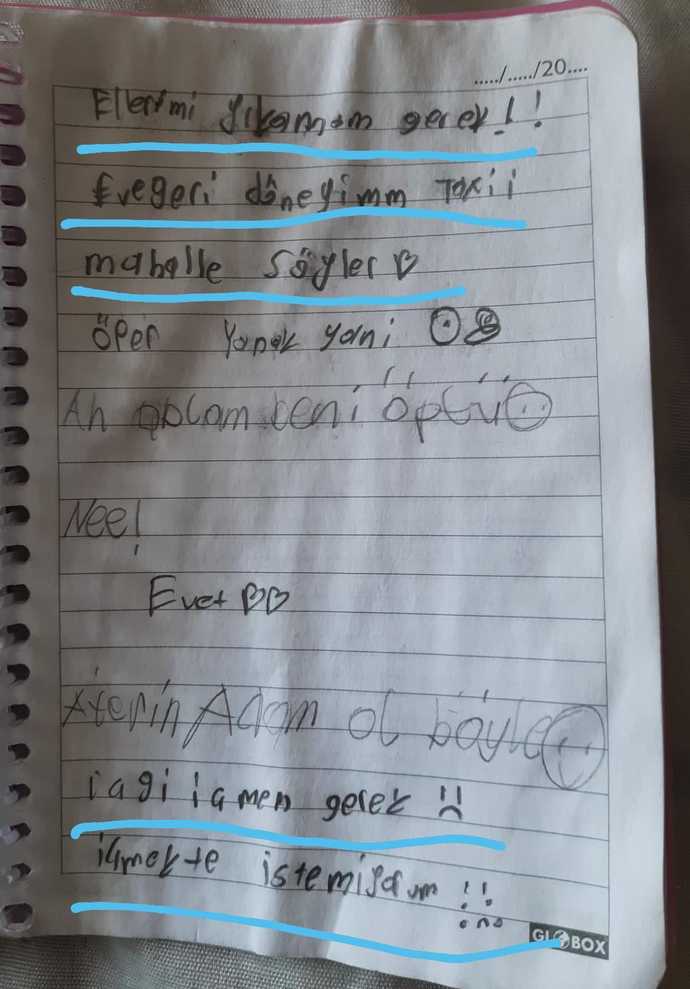 ...../...../20....
Ellerimi yıkamam gerek!!
Evegeri döneyimm Takii
mahalle söyler ♡
öper Yanak yani
Ah ablam beni öptü
Nee!
Evet ♡♡
Aferin Adam ol böyle
gerek
istemiyorum
GLOBOX